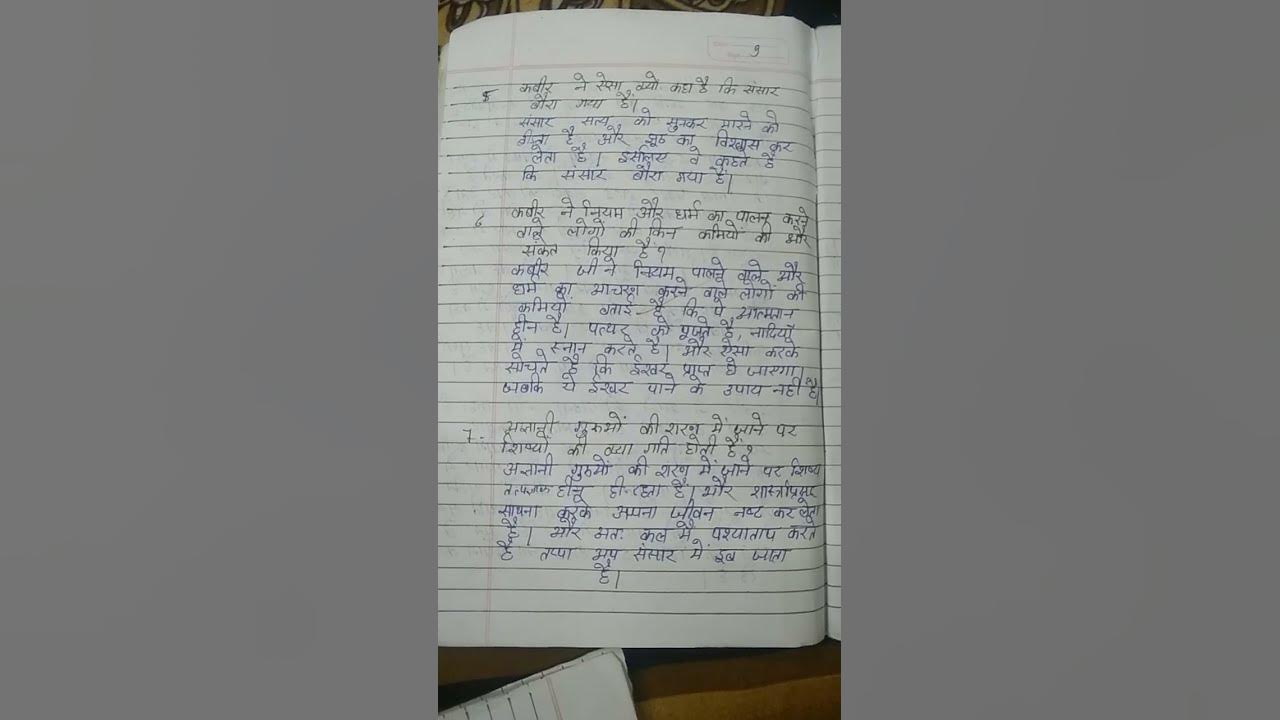 9
5 कबीर ने ऐसा क्यो कहा है कि संसार
बौरा गया है।
संसार सत्य को सुनकर मारने को
है और झूठ का विश्वास कर
लेता है। इसलिए वे कहते है
कि संसार बौरा गया है।
6 कबीर ने नियम और धर्म का पालन करने
वाले लोगों की किन कमियों की और
संकेत किया है?
कबीर जी ने नियम पालने वाले और
धर्म का आचरण करने वाले लोगों की
कमियों बताई है कि ये आत्मज्ञान
हीन है। पत्थर को पूजते है, नादियों
में स्नान करते है। और ऐसा करके
सोचते है कि ईश्वर प्राप्त हो जाएगा।
जबकि ये ईश्वर पाने के उपाय नहीं है।
7. अज्ञानी गुरुओं की शरण में जाने पर
शिष्यों की क्या गति होती है?
अज्ञानी गुरुओं की शरण में जाने पर शिष्य
हीन ही रहता है। और
साधना करके अपना जीवन नष्ट कर लेता
है। और अतः कल में पश्याताप करते
है तथा भव संसार में डूब जाता
है।